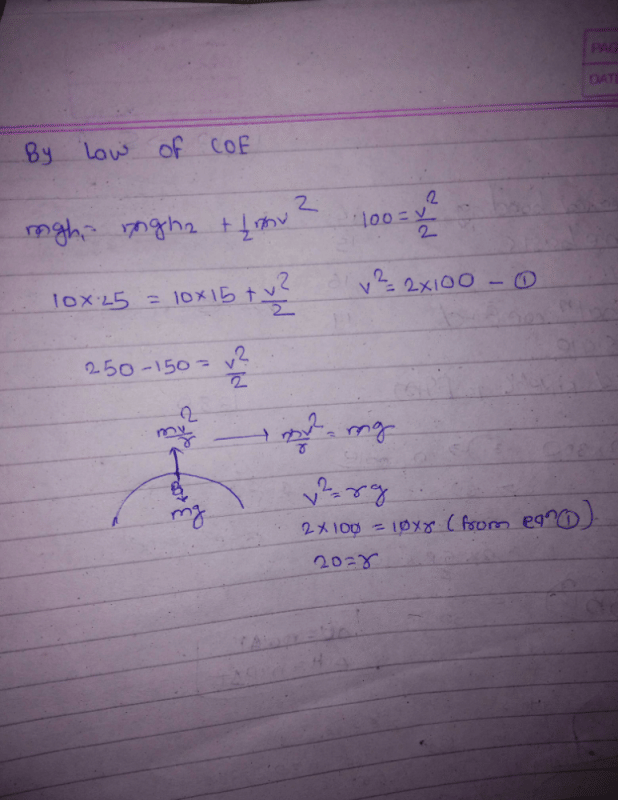 PAG
DATE
By Low of COE
mgh₁ = mgh₂ + 1/2 mv²    100 = v²/2
10×25 = 10×15 + v²/2    v² = 2×100 – ①
250 – 150 = v²/2
mv²/r → mv²/r = mg
mg    v² = rg
2×100 = 10×r (from eqn ①)
20 = r